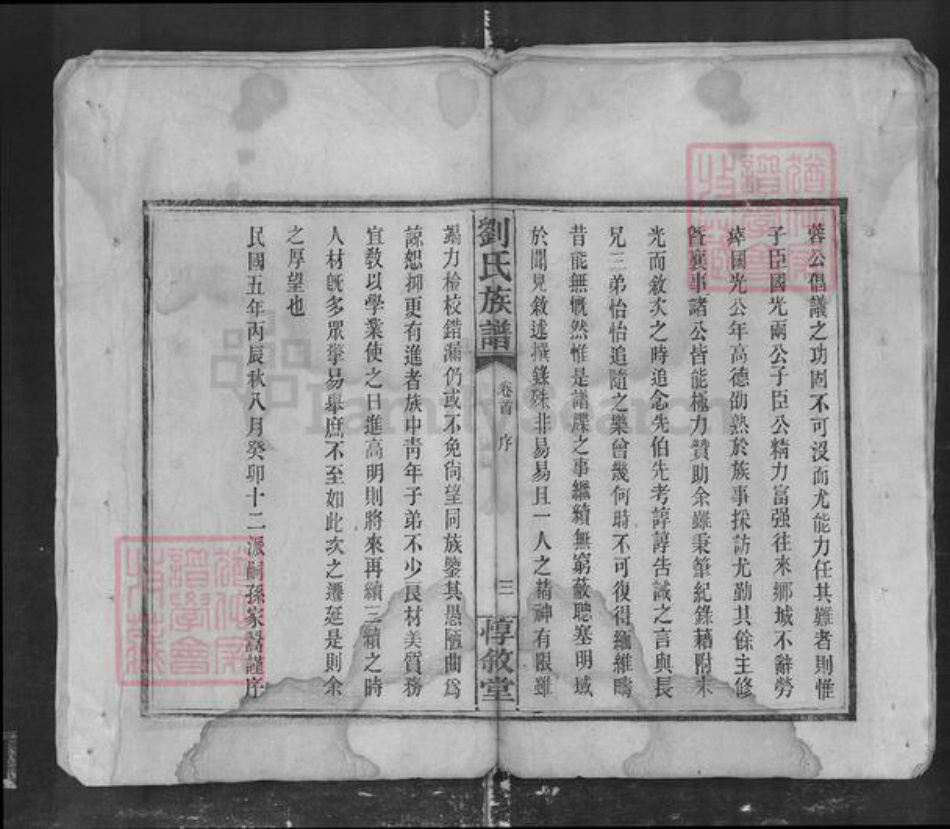 蓉公倡議之功固不可沒而尤能力任其難者則惟
子臣國光兩公子臣公精力富强往來鄉城不辭勞
瘁國光公年高德劭熟於族事採訪尤勤其餘主修
暨襄事諸公皆能極力贊助余雖秉筆紀錄藉附末
光而敘次之時追念先伯先考諄諄告誡之言與長
兄三弟怡怡追隨之樂曾幾何時不可復得緬維疇
昔能無慨然惟是譜牒之事繼續無窮蔽聰塞明域
於聞見敘述撰錄殊非易易且一人之精神有限雖
劉氏族譜
卷首
序
三
惇敘堂
竭力檢校錯漏仍或不免尚望同族鑒其愚陋曲為
諒恕抑更有進者族中靑年子弟不少良材美質務
宜敎以學業使之日進高明則將來再續三續之時
人材旣多眾擎易舉庶不至如此次之遷延是則余
之厚望也
民國五年丙辰秋八月癸卯十二派嗣孫家謹序
FamilySearch